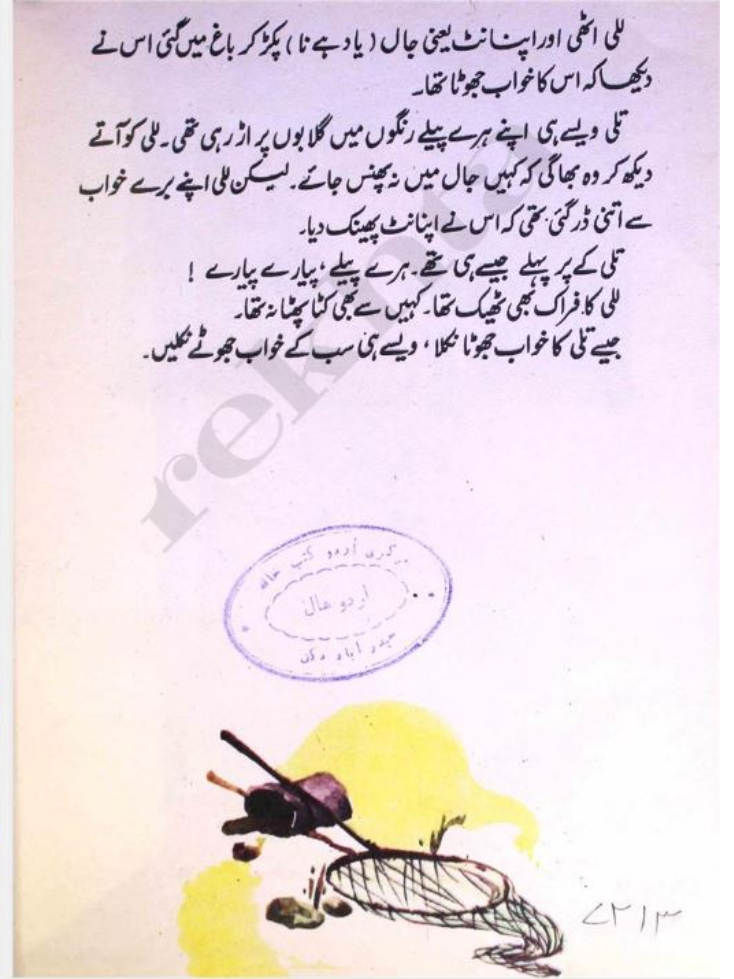 للی اٹھی اور اپنا نٹ یعنی جال ( یاد ہے نا ) پکڑ کر باغ میں گئی اس نے
دیکھا کہ اس کا خواب جھوٹا تھا۔
تلی ویسے ہی اپنے ہرے پیلے رنگوں میں گلابوں پر اڑ رہی تھی۔ للی کو آتے
دیکھ کر وہ بھاگی کہ کہیں جال میں نہ پھنس جائے۔ لیکن للی اپنے برے خواب
سے اتنی ڈر گئی تھی کہ اس نے اپنا نٹ پھینک دیا۔
تلی کے پر پہلے جیسے ہی تھے۔ ہرے پیلے ، پیارے پیارے !
للی کا فراک بھی ٹھیک تھا۔ کہیں سے بھی کٹا پھٹا نہ تھا۔
جیسے تلی کا خواب جھوٹا نکلا ، ویسے ہی سب کے خواب جھوٹے نکلیں۔
rekhta
مرکزی اردو کتب خانہ
اردو ہال
حیدر آباد دکن
۷۲۱۳